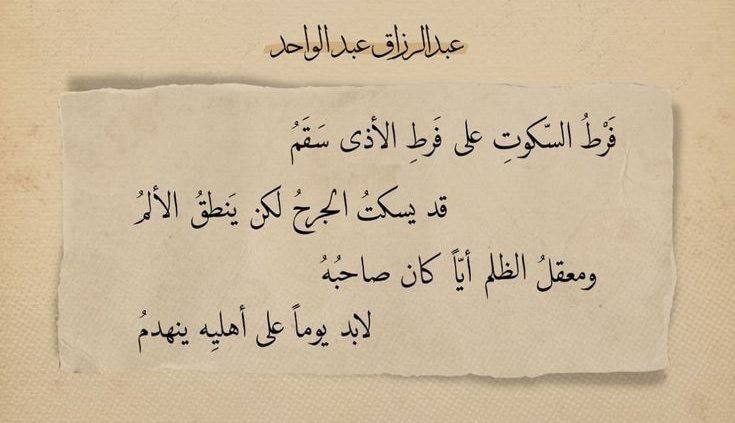 عبدالرزاق عبد الواحد
فَرْطُ السّكوتِ على فَرطِ الأذى سَقَمُ
قد يسكتُ الجرحُ لكن يَنطقُ الألمُ
ومعقلُ الظلم أيّاً كان صاحبُهُ
لابد يوماً على أهليِه ينهدمُ